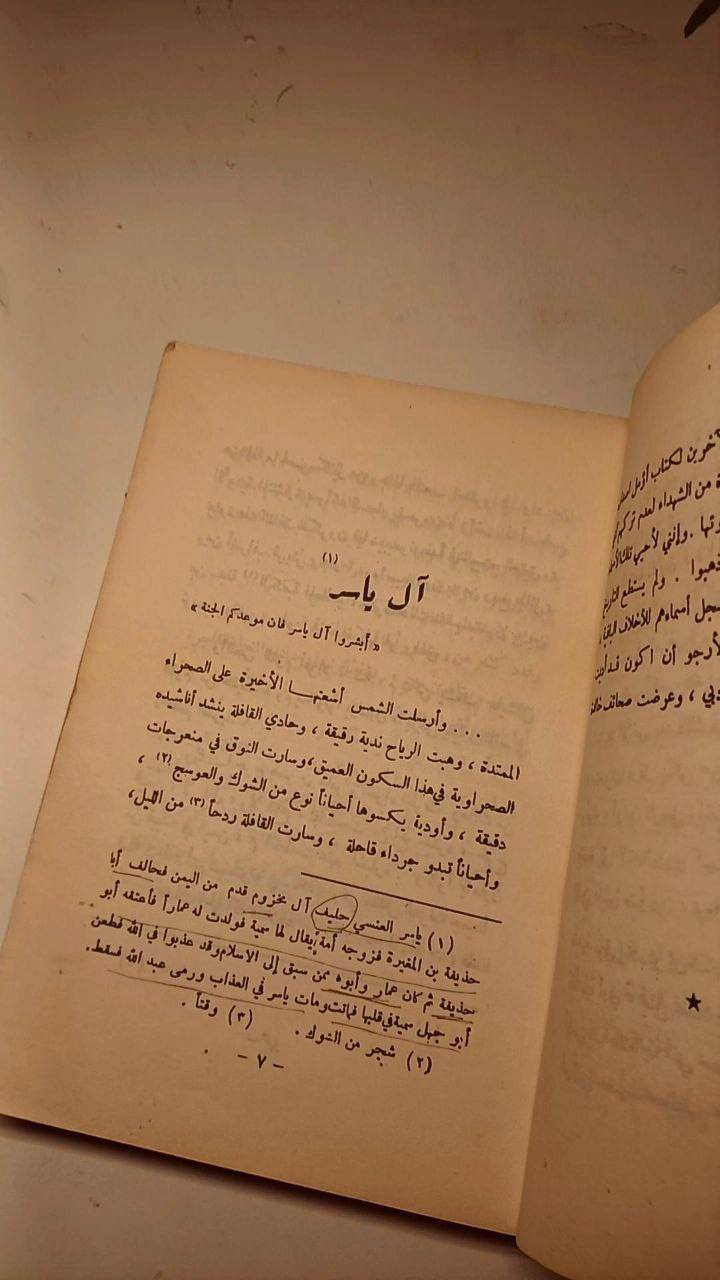 آخرين لكتاب
من الشهداء لعدم تركهم
وإنني لأحيي تلك
ذهبوا . ولم يستطع التاريخ
أسماءهم للأخلاف
لأرجو أن اكون قد
، وعرضت صحائف
★
آل ياسر (١)
« أبشروا آل ياسر فان موعدكم الجنة »
. . . وأرسلت الشمس أشعتهـا الأخيرة على الصحراء
الممتدة ، وهبت الرياح ندية رقيقة ، وحادي القافلة ينشد أناشيده
الصحراوية في هذا السكون العميق، وسارت النوق في منعرجات
دقيقة ، وأودية يكسوها أحياناً نوع من الشوك والعوسج (٢) ،
وأحياناً تبدو جرداء قاحلة ، وسارت القافلة ردحاً (٣) من الليل،
(١) ياسر العنسي حليف آل مخزوم قدم من اليمن فحالف أبا
حذيفة بن المغيرة فزوجه أمة يقال لها سمية فولدت له عماراً فأعتقه أبو
حذيفة ثم كان عمار وأبوه ممن سبق إلى الاسلام وقد عذبوا في الله فطعن
أبو جهل سمية في قلبها فماتت ومات ياسر في العذاب ورمى عبد الله فسقط.
(٢) شجر من الشوك . (٣) وقتاً .
- ٧ -